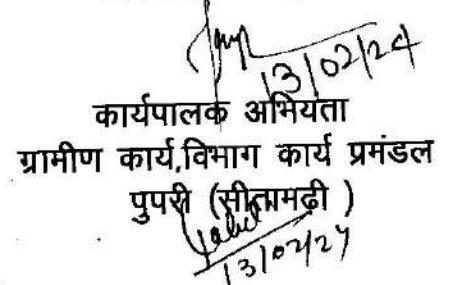 13/02/24
कार्यपालक अभियता
ग्रामीण कार्य,विभाग कार्य प्रमंडल
पुपरी (सीतामढी )
13/02/24